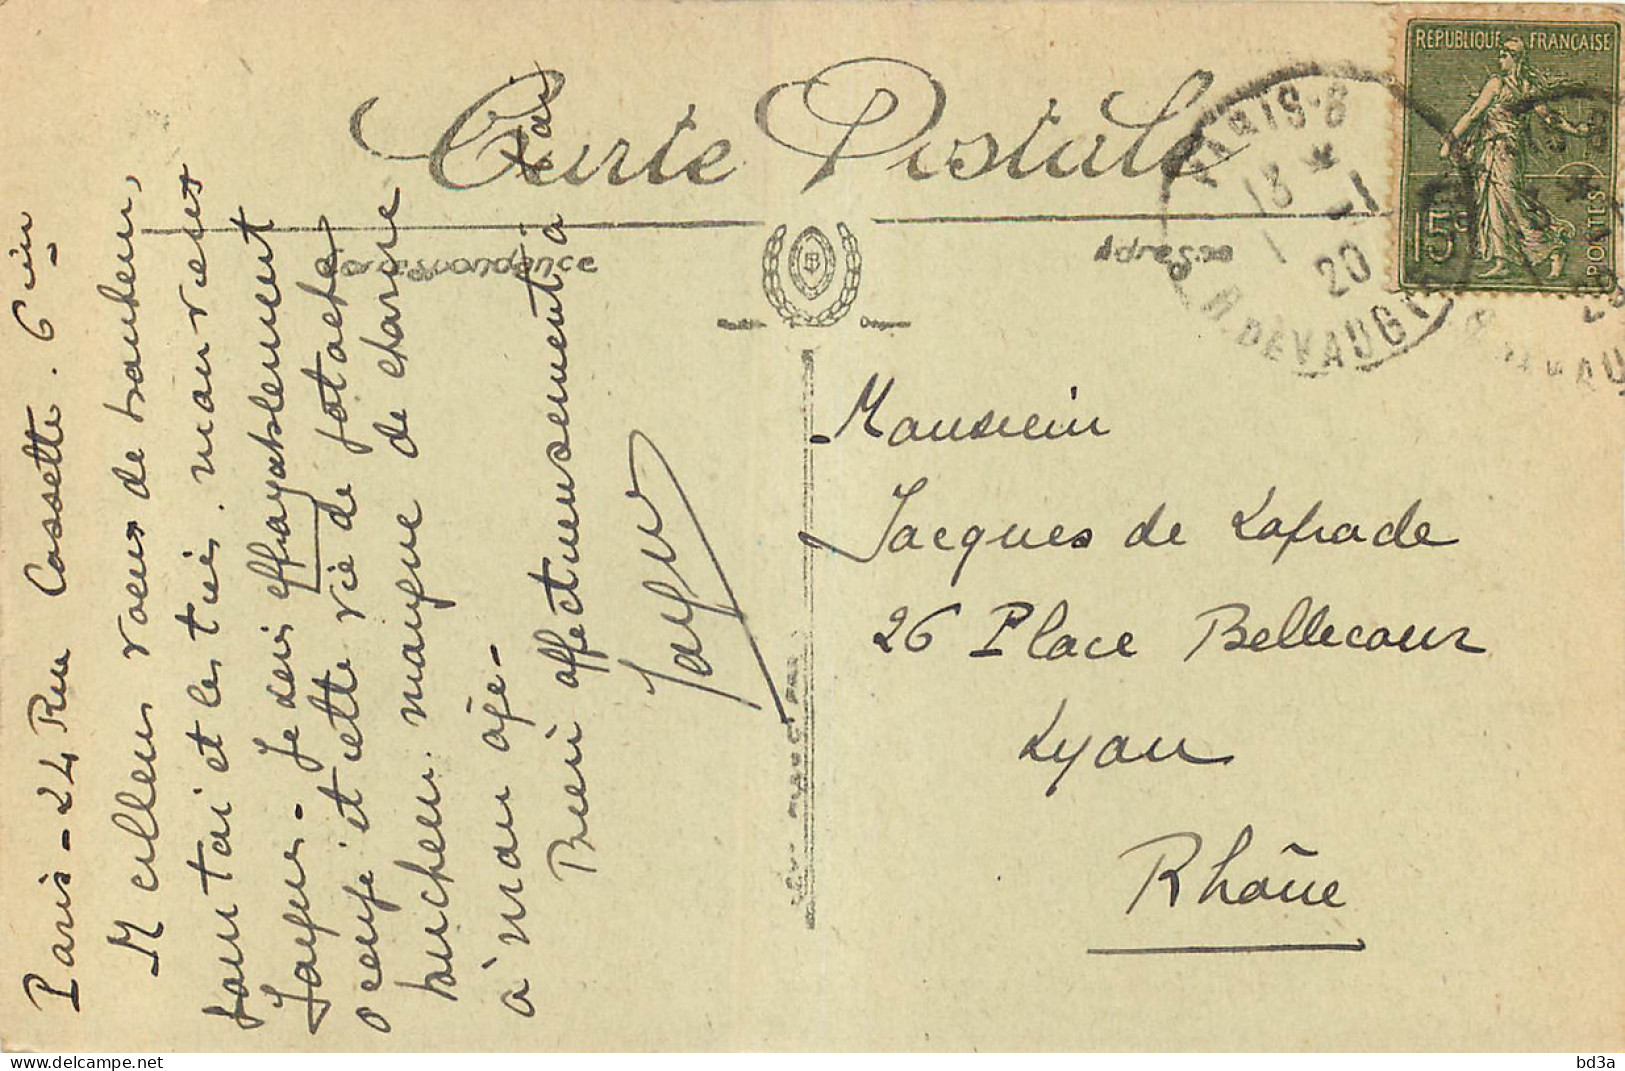 Carte Postale
Correspondance
Adresse
RÉPUBLIQUE FRANÇAISE
15c
POSTES
PARIS-6
13 *
1 -1
20
R. DE VAUGI
Paris - 24 Rue Cassette. 6ième
Meilleurs voeux de bonheur,
pour toi et les tiens. mon vieux
Jacques - Je suis effroyablement
occupé et cette vie de potache
bucheur manque de charme
à mon âge -
Bien affectueusement à
toi
Monsieur
Jacques de Laprade
26 Place Bellecour
Lyon
Rhône
bd3a